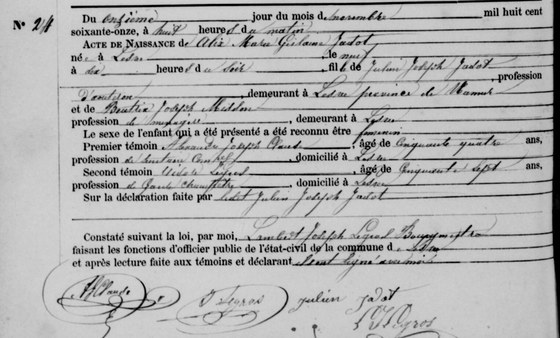 N° 24
Du onzième jour du mois de novembre mil huit cent
soixante-onze, à huit heures du matin
ACTE DE NAISSANCE de Alix Marie Ghislaine Jadot
née à le neuf
à six heures du soir fille de Julien Joseph Jadot
, profession
, demeurant à province de Namur
et de Joseph
profession de ménagère , demeurant à
Le sexe de l'enfant qui a été présenté a été reconnu être féminin
Premier témoin Alexandre Joseph Claude , âgé de cinquante quatre ans,
profession de , domicilié à
Second témoin Legros , âgé de cinquante sept ans,
profession de Garde champêtre , domicilié à
Sur la déclaration faite par ledit Julien Joseph Jadot
Constaté suivant la loi, par moi, Lambert Joseph Legros Bourgmestre
faisant les fonctions d'officier public de l'état-civil de la commune d
et après lecture faite aux témoins et déclarant signé avec moi
Claude
Legros
julien jadot
Legros